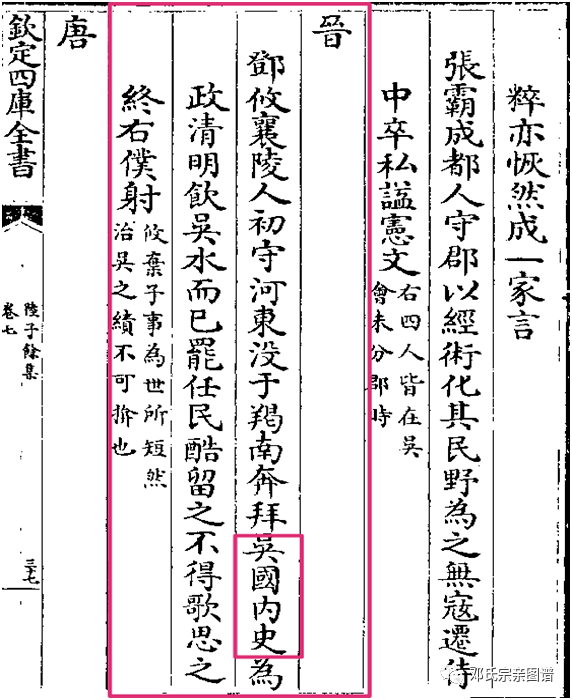 粹亦恢然成一家言
張霸成都人守郡以經術化其民野為之無寇遷侍
中卒私謚憲文
右四人皆在吳
會未分郡時
晉
鄧攸襄陵人初守河東没于羯南奔拜吳國内史為
政清明飲吳水而已罷任民酷留之不得歌思之
終右僕射
攸棄子事為世所短然
治吳之績不可揜也
唐
欽定四庫全書
陸子餘集
卷七
三七
邓氏宗亲图谱